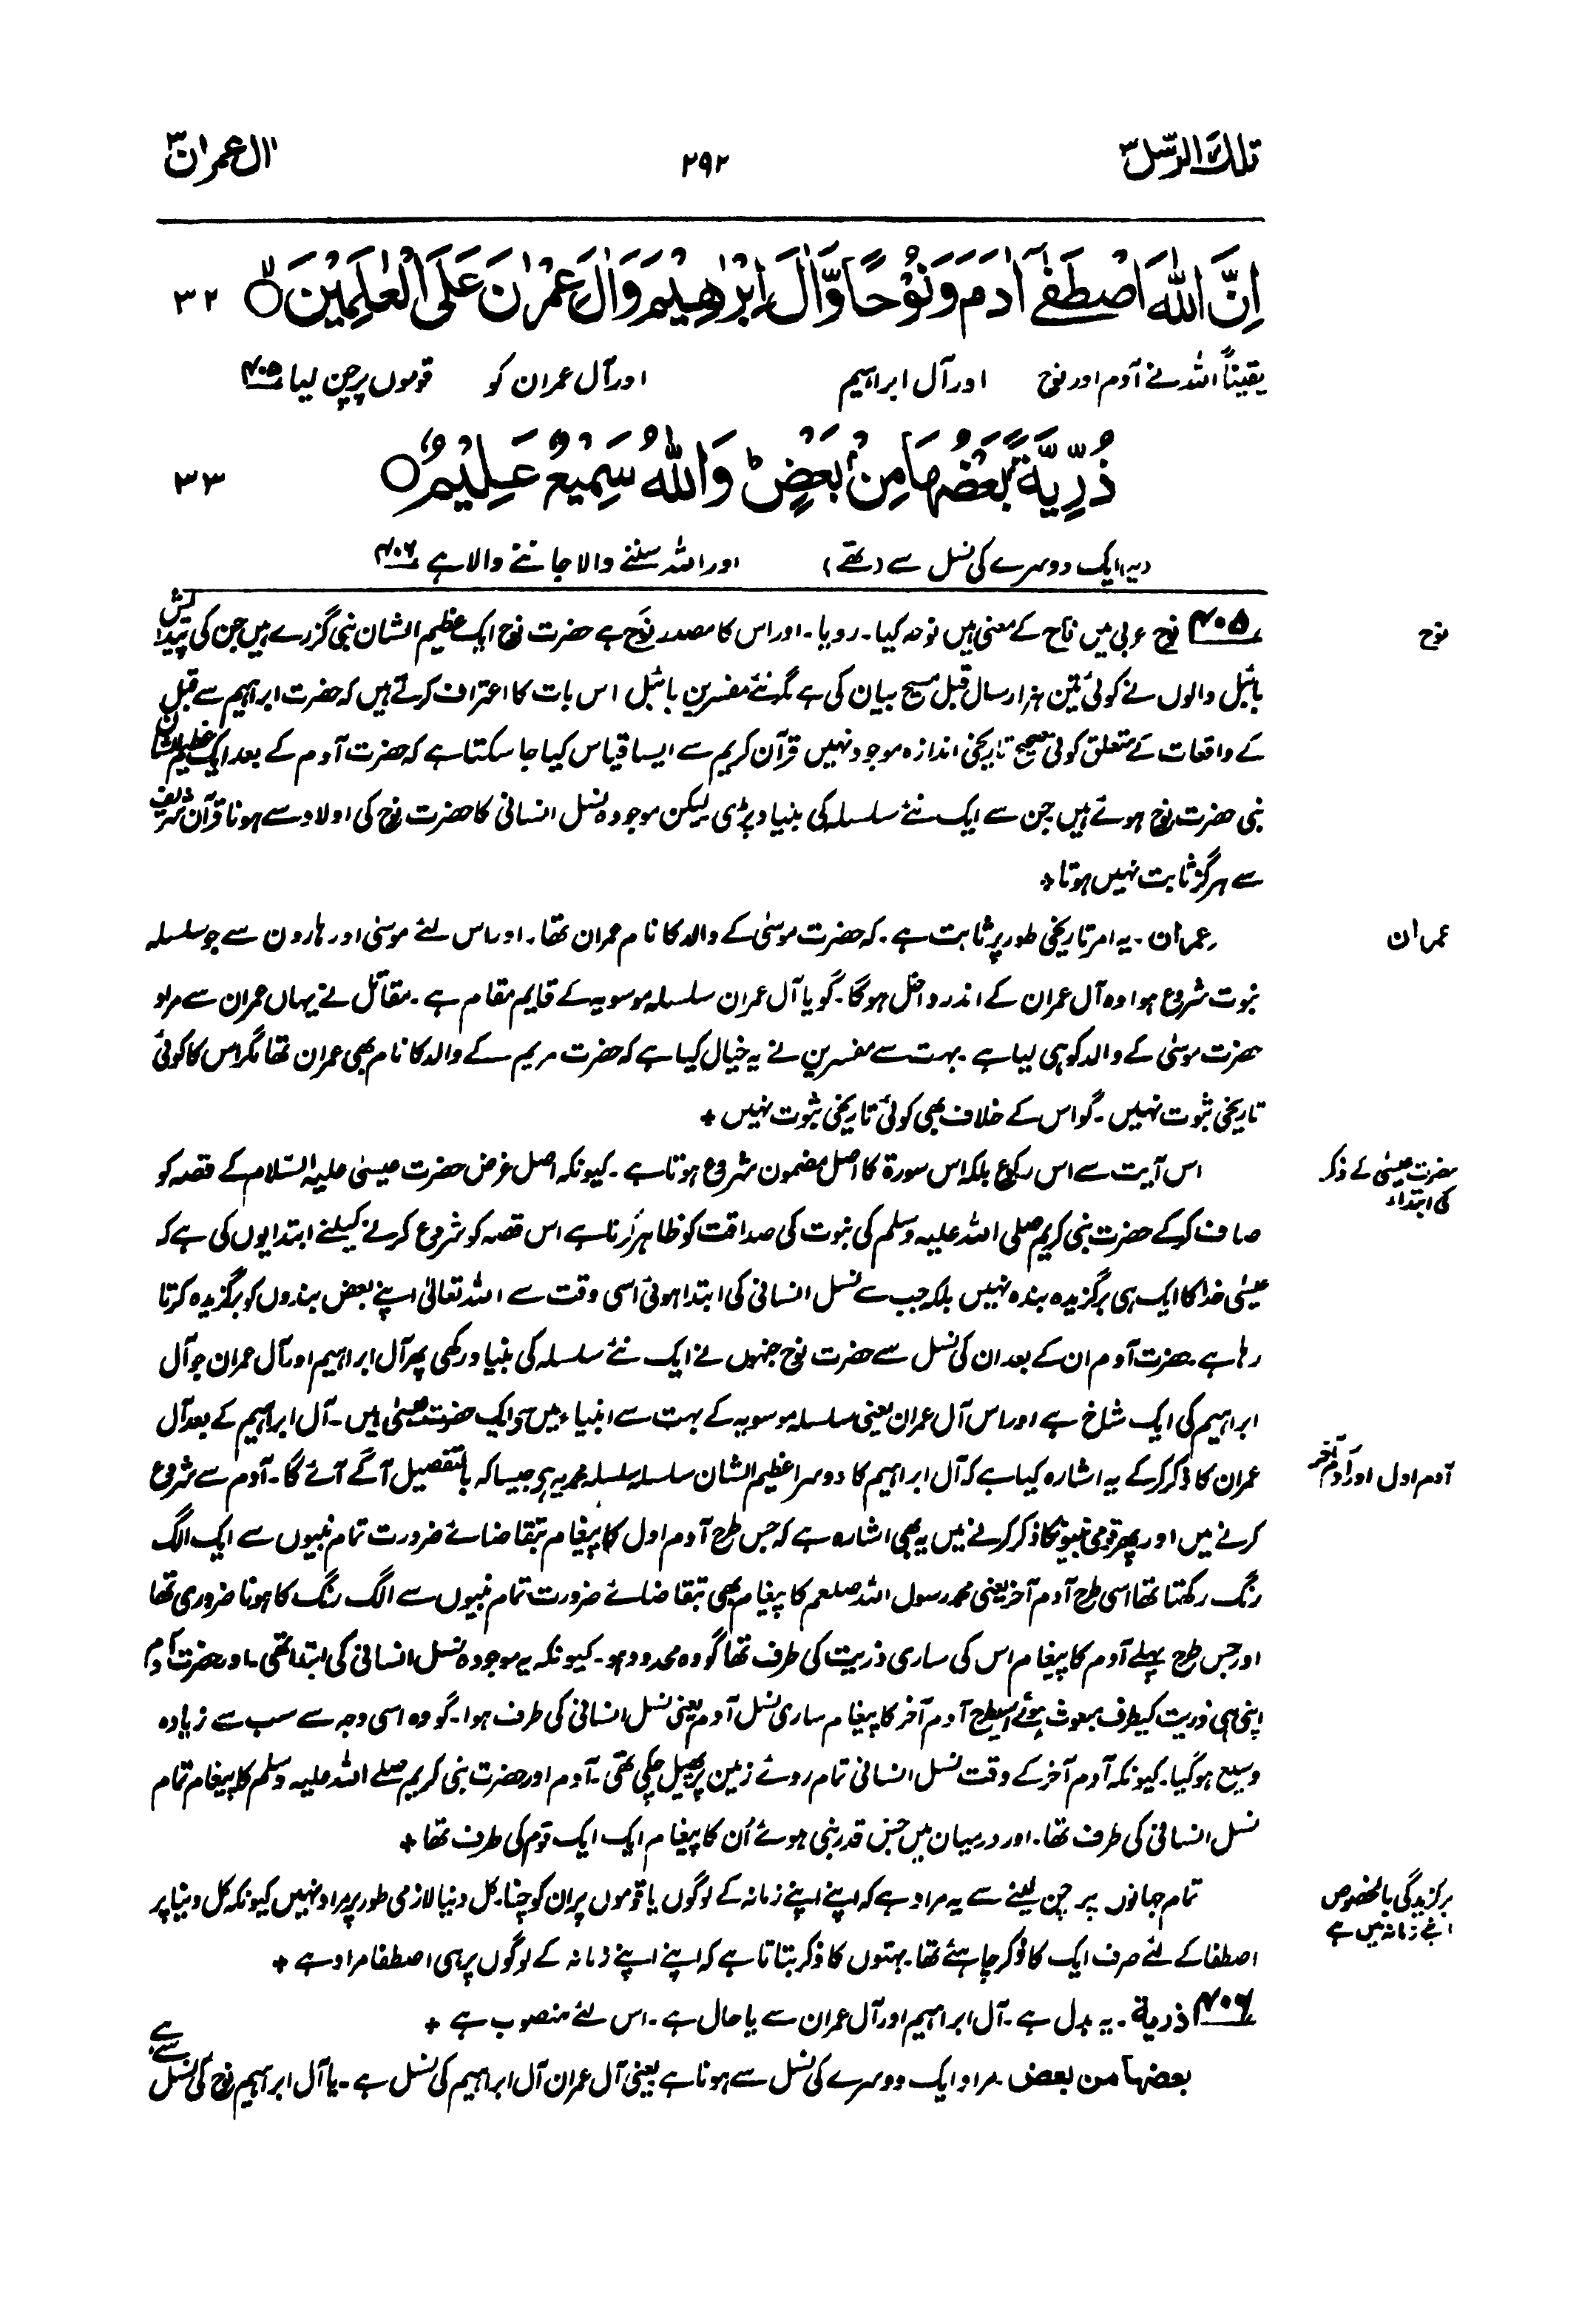 تلك الرسل ٣
٢٩٢
اٰل عمران ٣
اِنَّ اللّٰهَ اصْطَفٰٓى اٰدَمَ وَنُوْحًا وَّاٰلَ اِبْرٰهِيْمَ وَاٰلَ عِمْرٰنَ عَلَى الْعٰلَمِيْنَ ۙ ٣٢
یقیناً اللہ نے آدم اور نوح اور آل ابراہیم اور آل عمران کو قوموں پر چن لیا ۴۰۵
ذُرِّيَّةًۢ بَعْضُهَا مِنْۢ بَعْضٍ ۭ وَاللّٰهُ سَمِيْعٌ عَلِيْمٌ ۚ ٣٣
(یہ) ایک دوسرے کی نسل سے (تھے) اور اللہ سننے والا جاننے والا ہے ۴۰۶
نوح
۴۰۵ نوح عربی میں ناح کے معنی ہیں نوحہ کیا۔ رویا۔ اور اس کا مصدر نَوح ہے حضرت نوح ایک عظیم الشان نبی گزرے ہیں جن کی پیدائش
بائبل والوں نے کوئی تین ہزار سال قبل مسیح بیان کی ہے مگر نئے مفسرین بائبل اس بات کا اعتراف کرتے ہیں کہ حضرت ابراہیم سے قبل
کے واقعات کے متعلق کوئی صحیح تاریخی اندازہ موجود نہیں قرآن کریم سے ایسا قیاس کیا جا سکتا ہے کہ حضرت آدم کے بعد ایک عظیم الشان
نبی حضرت نوح ہوئے ہیں جن سے ایک نئے سلسلہ کی بنیاد پڑی لیکن موجودہ نسل انسانی کا حضرت نوح کی اولاد سے ہونا قرآن شریف
سے ہرگز ثابت نہیں ہوتا +
عمران
عمران۔ یہ امر تاریخی طور پر ثابت ہے۔ کہ حضرت موسیٰ کے والد کا نام عمران تھا۔ اور اس لئے موسیٰ اور ہارون سے جو سلسلہ
نبوت شروع ہوا وہ آل عمران کے اندر داخل ہوگا۔ گویا آل عمران سلسلہ موسویہ کے قایم مقام ہے۔ مقاتل نے یہاں عمران سے مراد
حضرت موسیٰ کے والد کو ہی لیا ہے۔ بہت سے مفسرین نے یہ خیال کیا ہے کہ حضرت مریم کے والد کا نام بھی عمران تھا مگر اس کا کوئی
تاریخی ثبوت نہیں۔ گو اس کے خلاف بھی کوئی تاریخی ثبوت نہیں +
حضرت عیسیٰ کے ذکر
کی ابتداء
اس آیت سے اس رکوع بلکہ اس سورۃ کا اصل مضمون شروع ہوتا ہے۔ کیونکہ اصل غرض حضرت عیسیٰ علیہ السّلام کے قصہ کو
صاف کر کے حضرت نبی کریم صلی اللہ علیہ وسلم کی نبوت کی صداقت کو ظاہر کرنا ہے اس قصہ کو شروع کرنے کیلئے ابتدا یوں کی ہے کہ
عیسیٰ خدا کا ایک ہی برگزیدہ بندہ نہیں بلکہ جب سے نسل انسانی کی ابتدا ہوئی اسی وقت سے اللہ تعالیٰ اپنے بعض بندوں کو برگزیدہ کرتا
رہا ہے۔ حضرت آدم ان کے بعد ان کی نسل سے حضرت نوح جنہوں نے ایک نئے سلسلہ کی بنیاد رکھی پھر آل ابراہیم اور آل عمران جو آل
ابراہیم کی ایک شاخ ہے اور اس آل عمران یعنی سلسلہ موسویہ کے بہت سے انبیاء میں سے ایک حضرت عیسیٰ ہیں۔ آل ابراہیم کے بعد آل
آدم اول اور آدم آخر
عمران کا ذکر کر کے یہ اشارہ کیا ہے کہ آل ابراہیم کا دوسرا عظیم الشان سلسلہ سلسلہ محمدیہ ہے جیسا کہ بالتفصیل آگے آئے گا۔ آدم سے شروع
کرنے میں اور پھر قومی نبیوں کا ذکر کرنے میں یہ بھی اشارہ ہے کہ جس طرح آدم اول کا پیغام بتقاضائے ضرورت تمام نبیوں سے ایک الگ
رنگ رکھتا تھا اسی طرح آدم آخر یعنی محمد رسول اللہ صلعم کا پیغام بھی بتقاضائے ضرورت تمام نبیوں سے الگ رنگ کا ہونا ضروری تھا
اور جس طرح پہلے آدم کا پیغام اس کی ساری ذریت کی طرف تھا گو وہ محدود ہو۔ کیونکہ یہ موجودہ نسل انسانی کی ابتدا تھی۔ اور حضرت آدم
اپنی ہی ذریت کیطرف مبعوث ہوئے اسیطرح آدم آخر کا پیغام ساری نسل آدم یعنی نسل انسانی کی طرف ہوا۔ گو وہ اسی وجہ سے سب سے زیادہ
وسیع ہوگیا۔ کیونکہ آدم آخر کے وقت نسل انسانی تمام روئے زمین پر پھیل چکی تھی۔ آدم اور حضرت نبی کریم صلے اللہ علیہ وسلم کا پیغام تمام
نسل انسانی کی طرف تھا۔ اور درمیان میں جس قدر نبی ہوئے اُن کا پیغام ایک ایک قوم کی طرف تھا +
برگزیدگی بالخصوص
اپنے زمانہ میں ہے
تمام جہانوں پر چن لینے سے یہ مراد ہے کہ اپنے اپنے زمانہ کے لوگوں یا قوموں پر ان کو چنا۔ کل دنیا لازمی طور پر مراد نہیں کیونکہ کل دنیا پر
اصطفا کے لئے صرف ایک کا ذکر چاہئے تھا۔ بہتوں کا ذکر بتاتا ہے کہ اپنے اپنے زمانہ کے لوگوں پر ہی اصطفا مراد ہے +
۴۰۶ ذریة۔ یہ بدل ہے۔ آل ابراہیم اور آل عمران سے یا حال ہے۔ اس لئے منصوب ہے +
بعضہا من بعض۔ مراد ایک دوسرے کی نسل سے ہونا ہے یعنی آل عمران آل ابراہیم کی نسل ہے۔ یا آل ابراہیم نوح کی نسل سے ہے